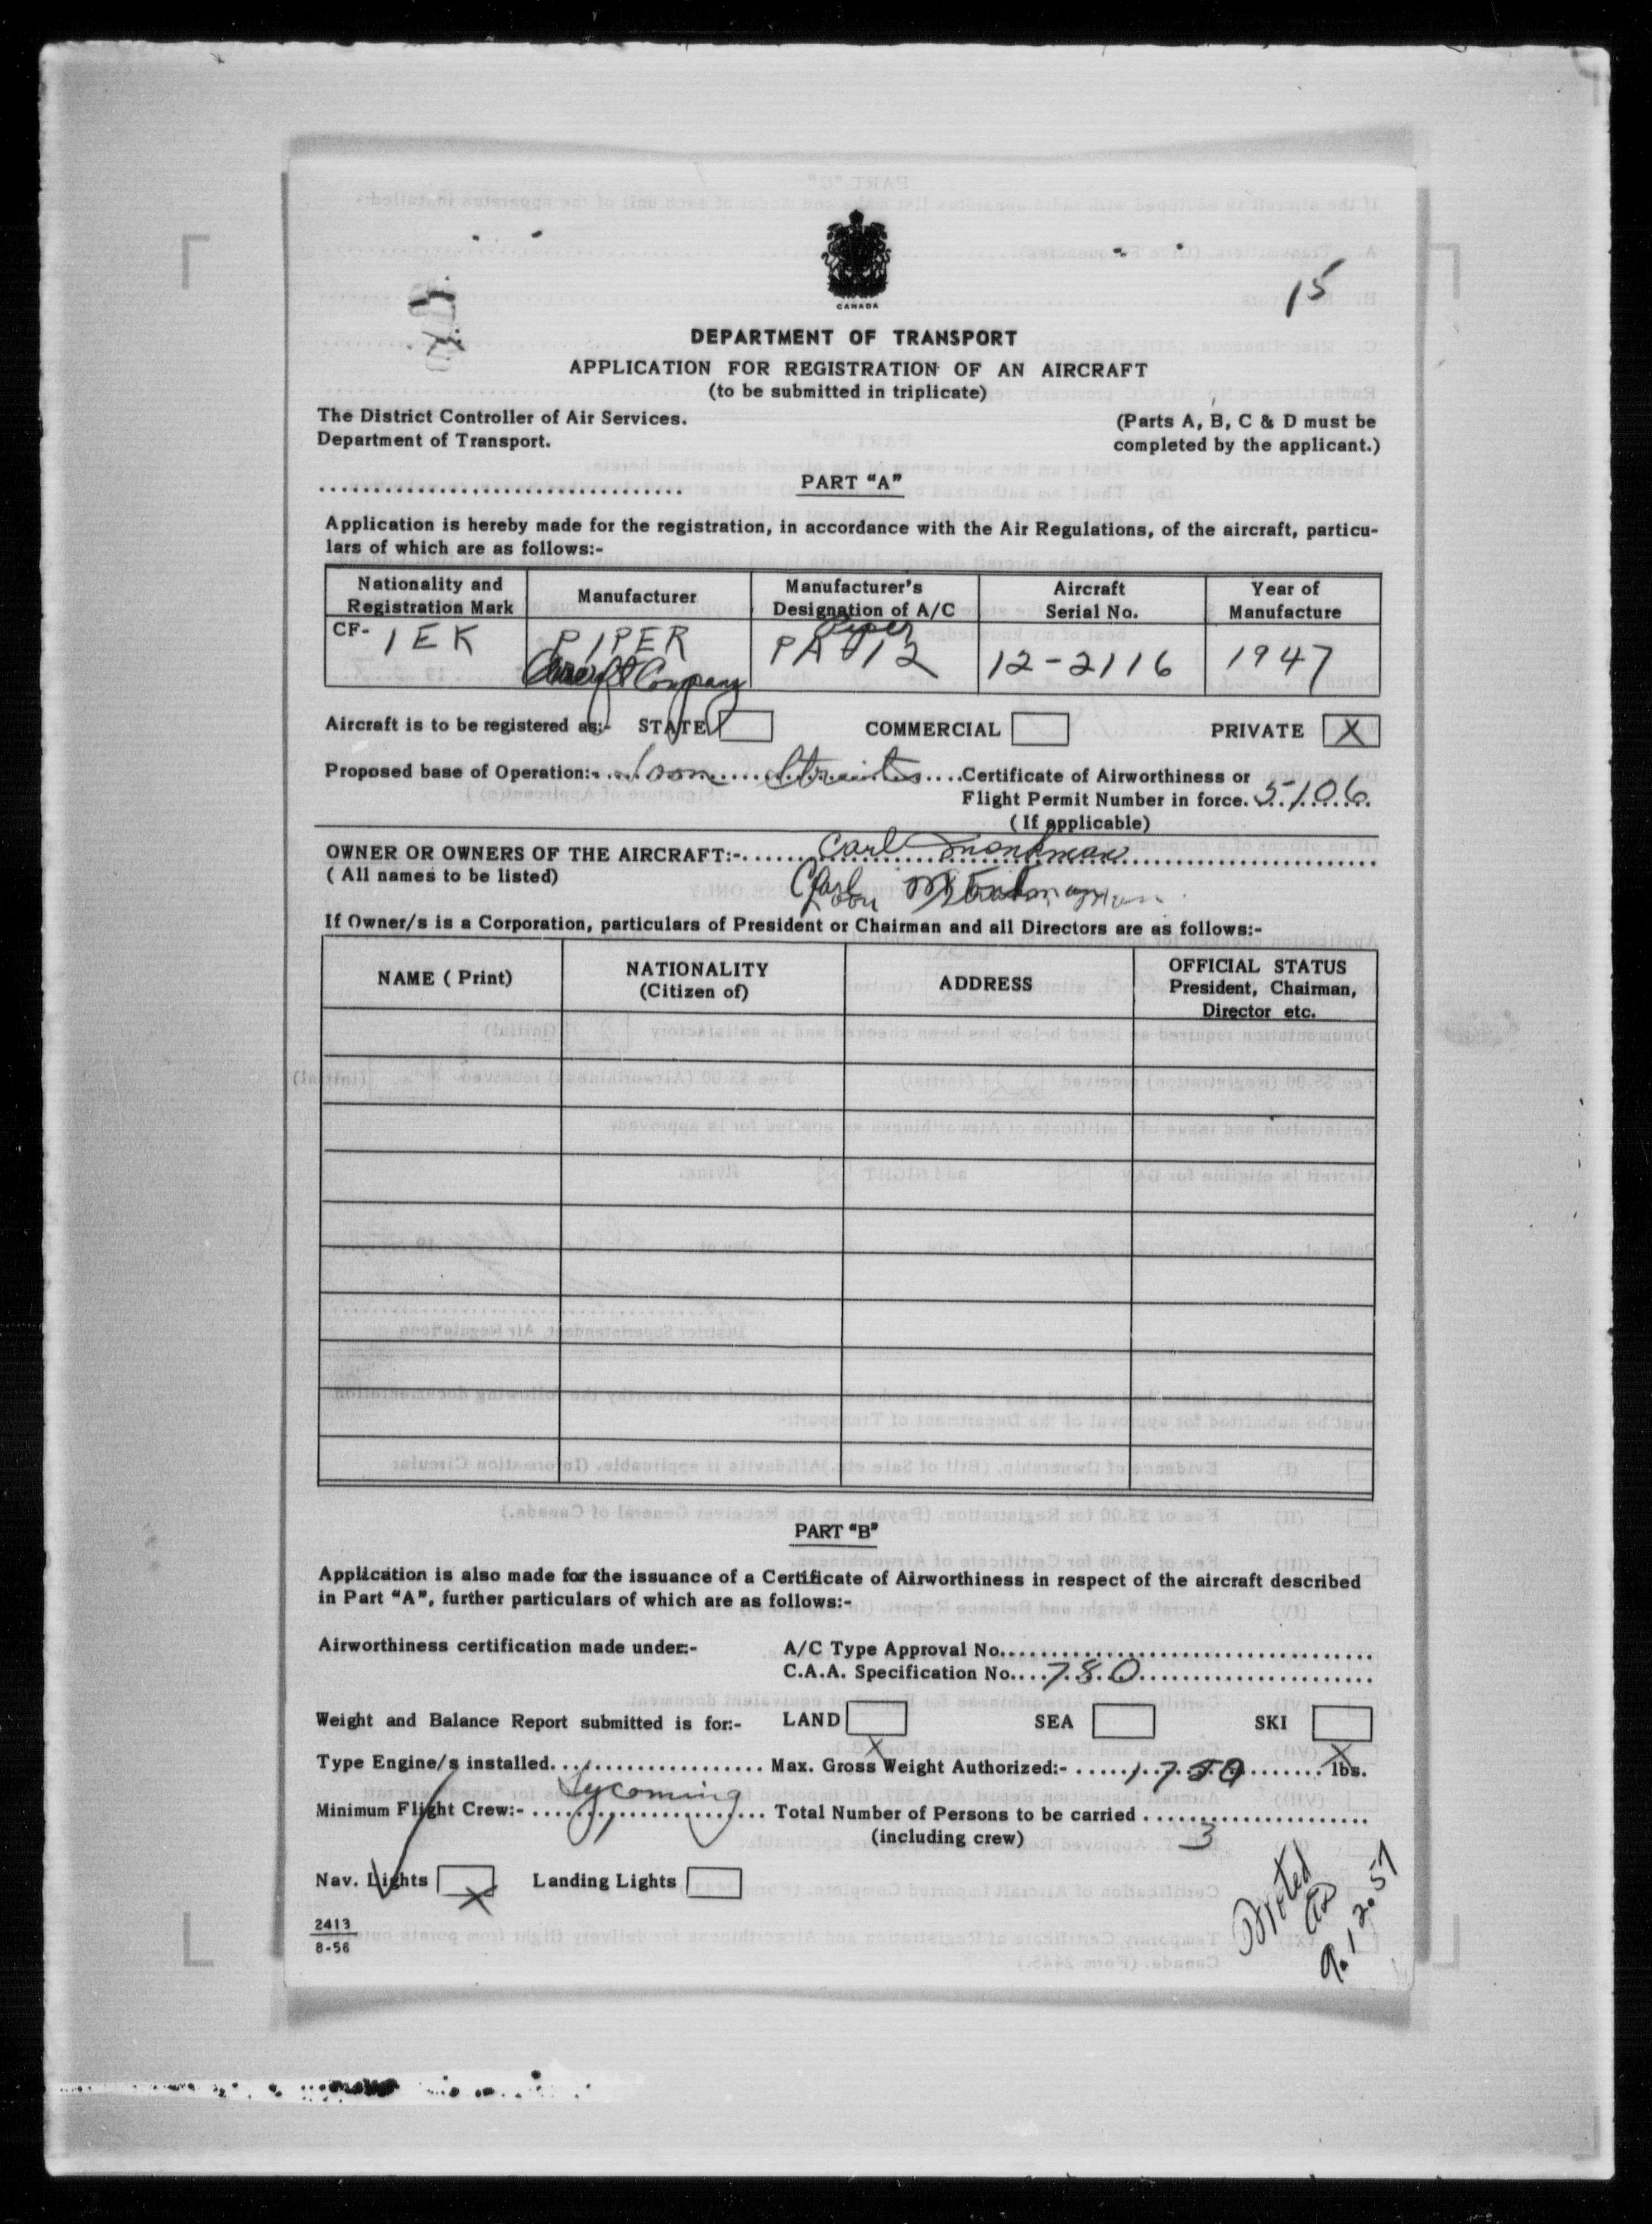 15
CANADA
DEPARTMENT OF TRANSPORT
APPLICATION FOR REGISTRATION OF AN AIRCRAFT
(to be submitted in triplicate)
The District Controller of Air Services.
Department of Transport.
(Parts A, B, C & D must be
completed by the applicant.)
PART "A"
Application is hereby made for the registration, in accordance with the Air Regulations, of the aircraft, particu-
lars of which are as follows:-
Nationality and Registration Mark
Manufacturer
Manufacturer's Designation of A/C
Aircraft Serial No.
Year of Manufacture
CF- IEK
PIPER Aircraft Company
Piper PA 12
12-2116
1947
Aircraft is to be registered as:- STATE COMMERCIAL PRIVATE X
Proposed base of Operation:- Loon Straits Certificate of Airworthiness or
Flight Permit Number in force. 5106
(If applicable)
OWNER OR OWNERS OF THE AIRCRAFT:- Carl Monkman
(All names to be listed) Carl Monkman
If Owner/s is a Corporation, particulars of President or Chairman and all Directors are as follows:-
NAME (Print)
NATIONALITY (Citizen of)
ADDRESS
OFFICIAL STATUS President, Chairman, Director etc.
PART "B"
Application is also made for the issuance of a Certificate of Airworthiness in respect of the aircraft described
in Part "A", further particulars of which are as follows:-
Airworthiness certification made under:- A/C Type Approval No.
C.A.A. Specification No. 780
Weight and Balance Report submitted is for:- LAND X SEA SKI X
Type Engine/s installed. Lycoming Max. Gross Weight Authorized:- 1750 lbs.
Minimum Flight Crew:- 1 Total Number of Persons to be carried 3
(including crew)
Nav. Lights X Landing Lights
2413
8-56
Noted
9.12.57